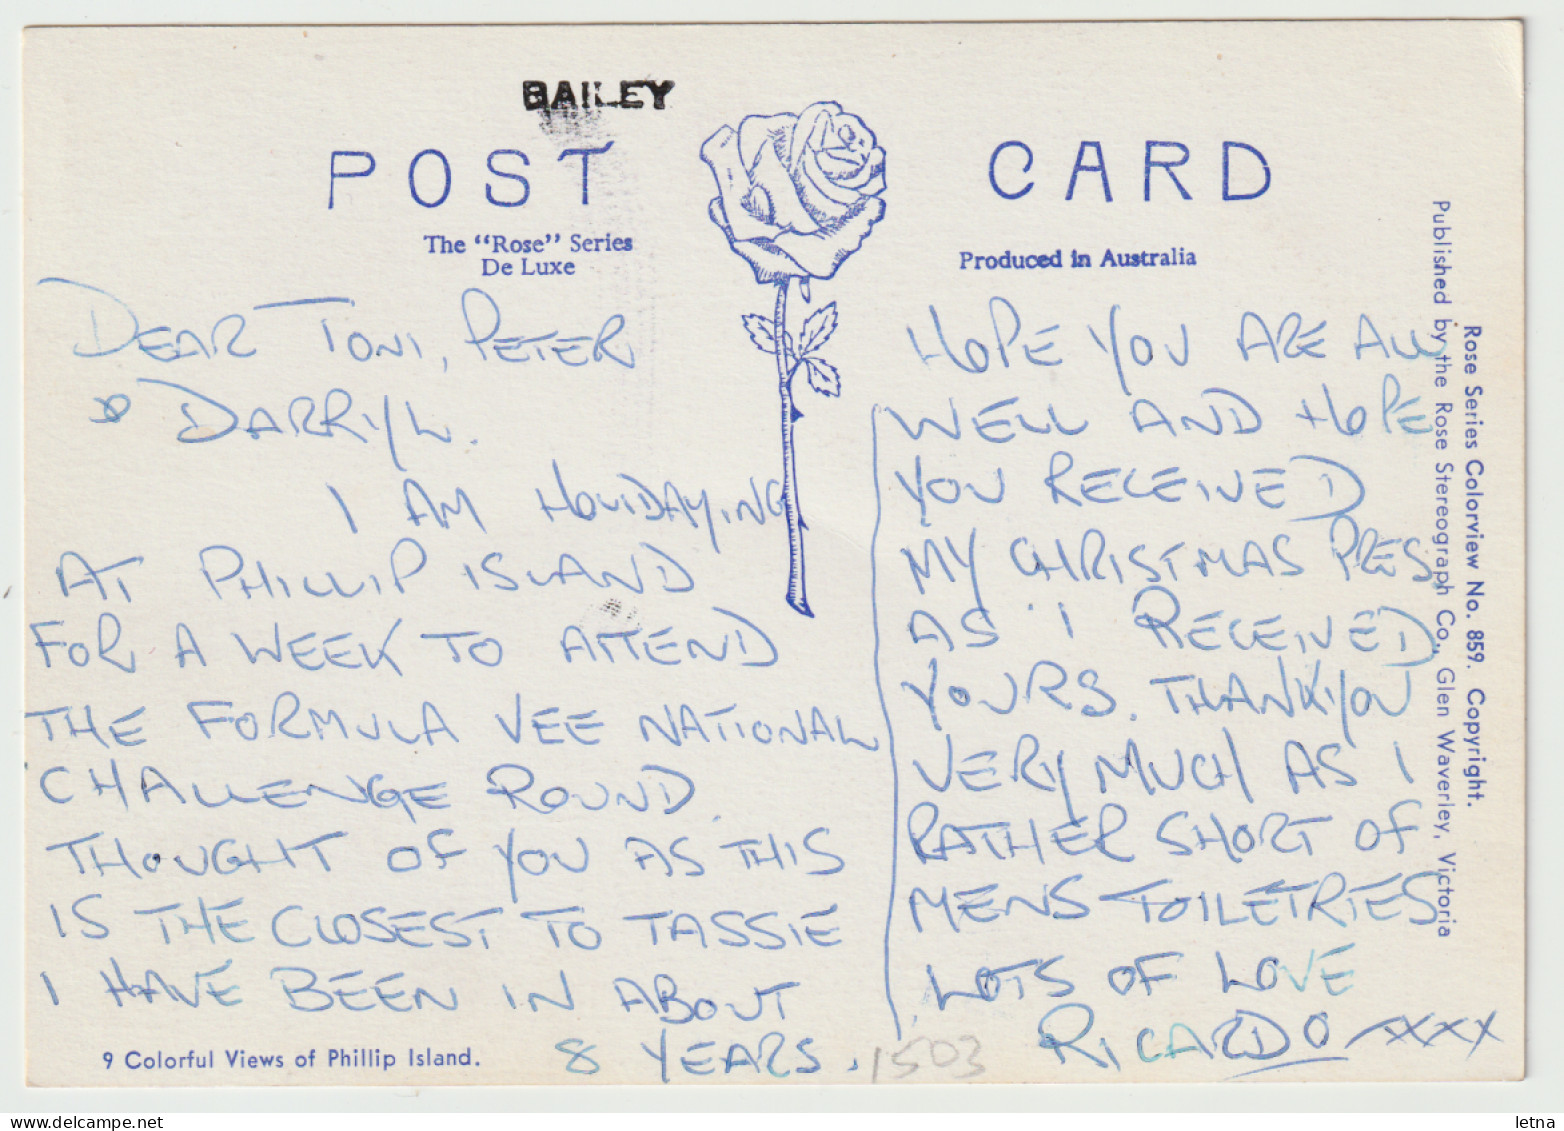 BAILEY
POST CARD
The "Rose" Series
De Luxe
Produced in Australia
DEAR TONI, PETER
& DARRYL.
I AM HOLIDAYING
AT PHILLIP ISLAND
FOR A WEEK TO ATTEND
THE FORMULA VEE NATIONAL
CHALLENGE ROUND.
THOUGHT OF YOU AS THIS
IS THE CLOSEST TO TASSIE
I HAVE BEEN IN ABOUT
8 YEARS.
HOPE YOU ARE ALL
WELL AND HOPE
YOU RECEIVED
MY CHRISTMAS PRES.
AS I RECEIVED
YOURS. THANKYOU
VERY MUCH AS I
RATHER SHORT OF
MENS TOILETRIES
LOTS OF LOVE
RICARDO xxxx
1503
9 Colorful Views of Phillip Island.
Rose Series Colorview No. 859. Copyright.
Published by the Rose Stereograph Co., Glen Waverley, Victoria
letna